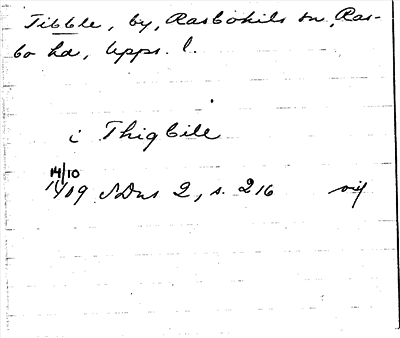 Tibble, by, Rasbokils sn, Ras-
bo hd, Upps. l.
i Thigbile
14/10
1409 SDns 2, s. 216